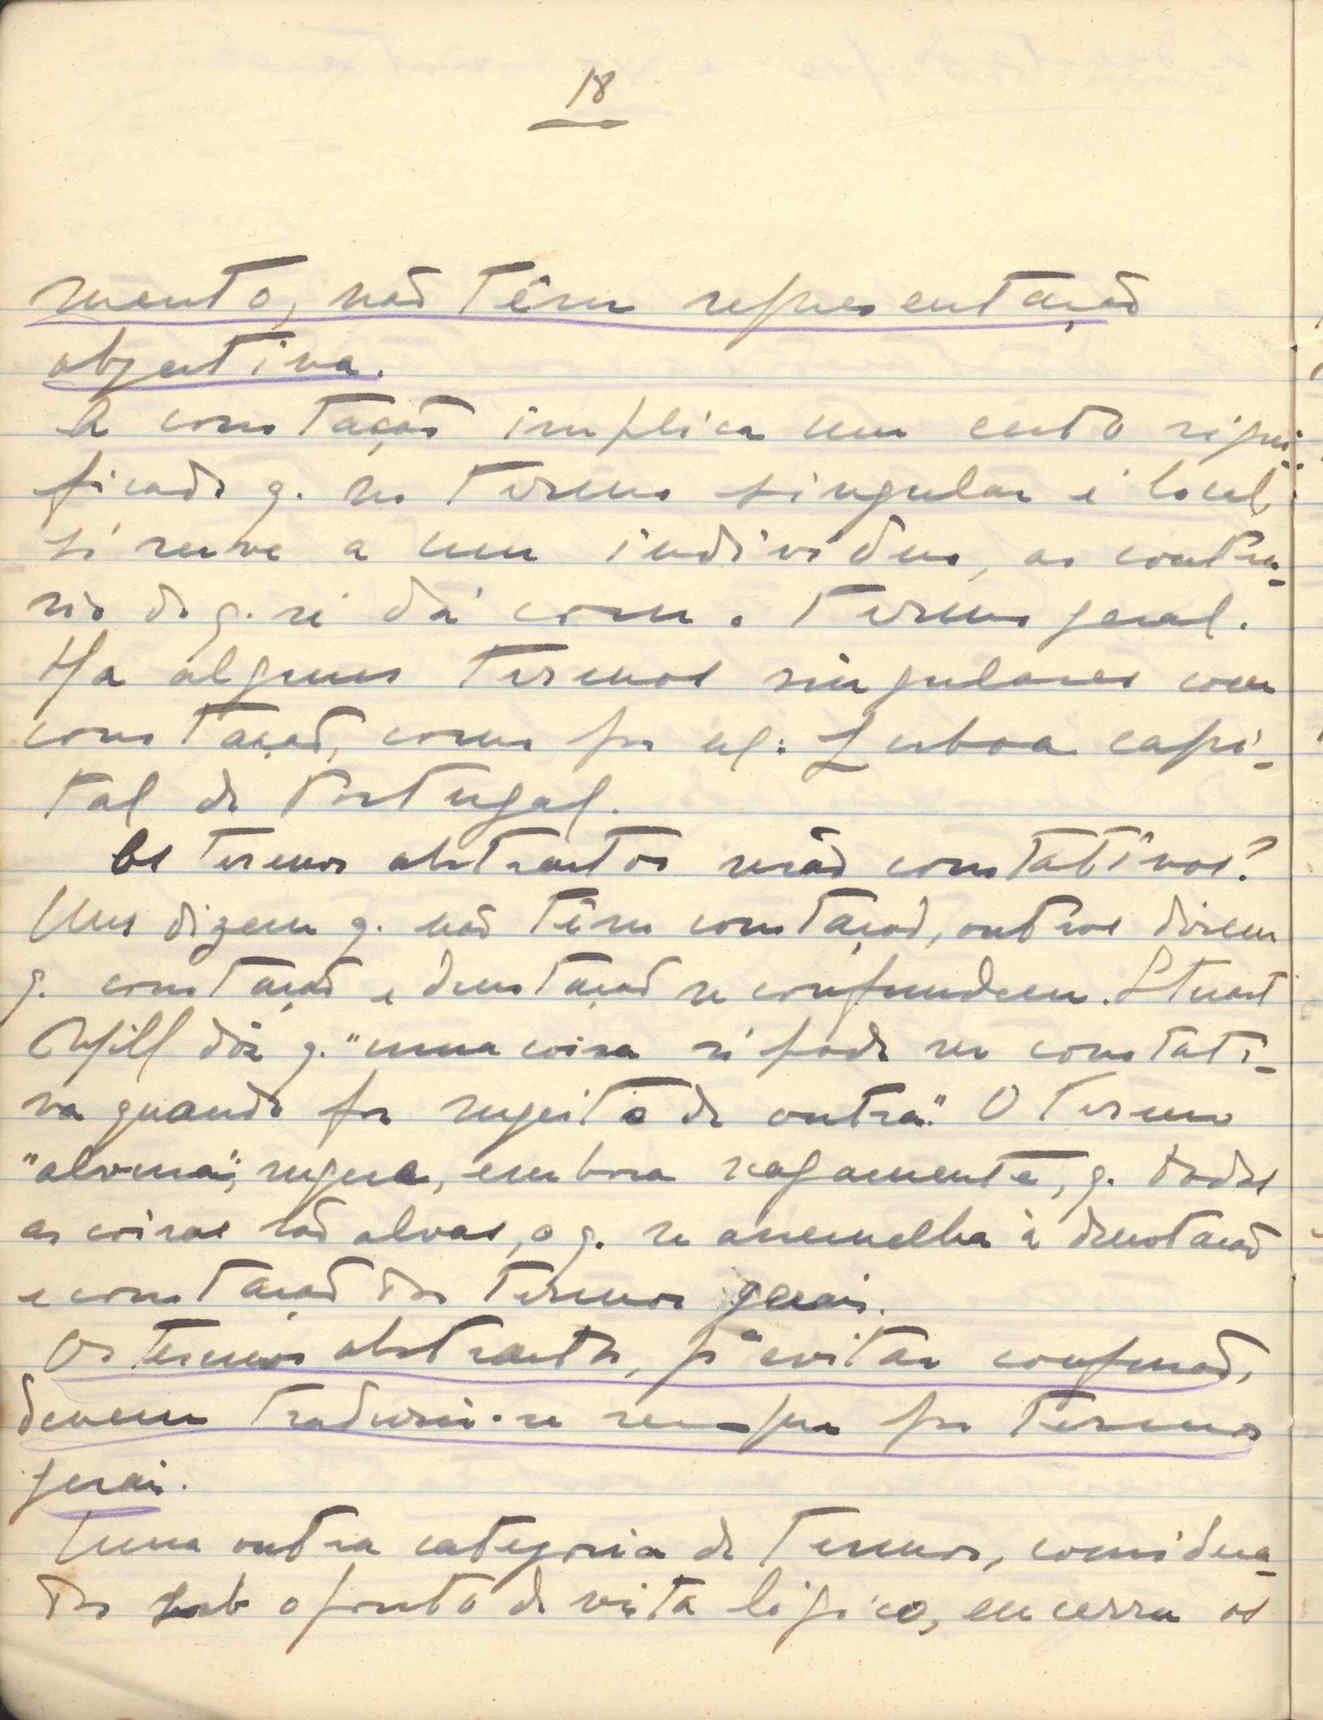 18
mento, não têm representação
objectiva.
A conotação implica um certo signi-
ficado q. no termo singular e local
só serve a um individuo, ao contra-
rio do q. se dá com o termo geral.
Ha alguns termos singulares com
conotação, como por ex: Lisboa capi-
tal de Portugal.
Os termos abstractos serão conotativos?
Uns dizem q. não têm conotação, outros dizem
q. conotação e denotação se confundem. Stuart
Mill diz q. "uma coisa só pode ser conotati-
va quando for sujeito de outra". O termo
"alvura", sugere, embora vagamente, q. todas
as coisas são alvas, o q. se assemelha à denotação
e conotação dos termos gerais.
Os termos abstractos, pª evitar confusão,
devem traduzir-se sempre por termos
gerais.
Uma outra categoria de termos, considera-
dos sob o ponto de vista lógico, encerra os